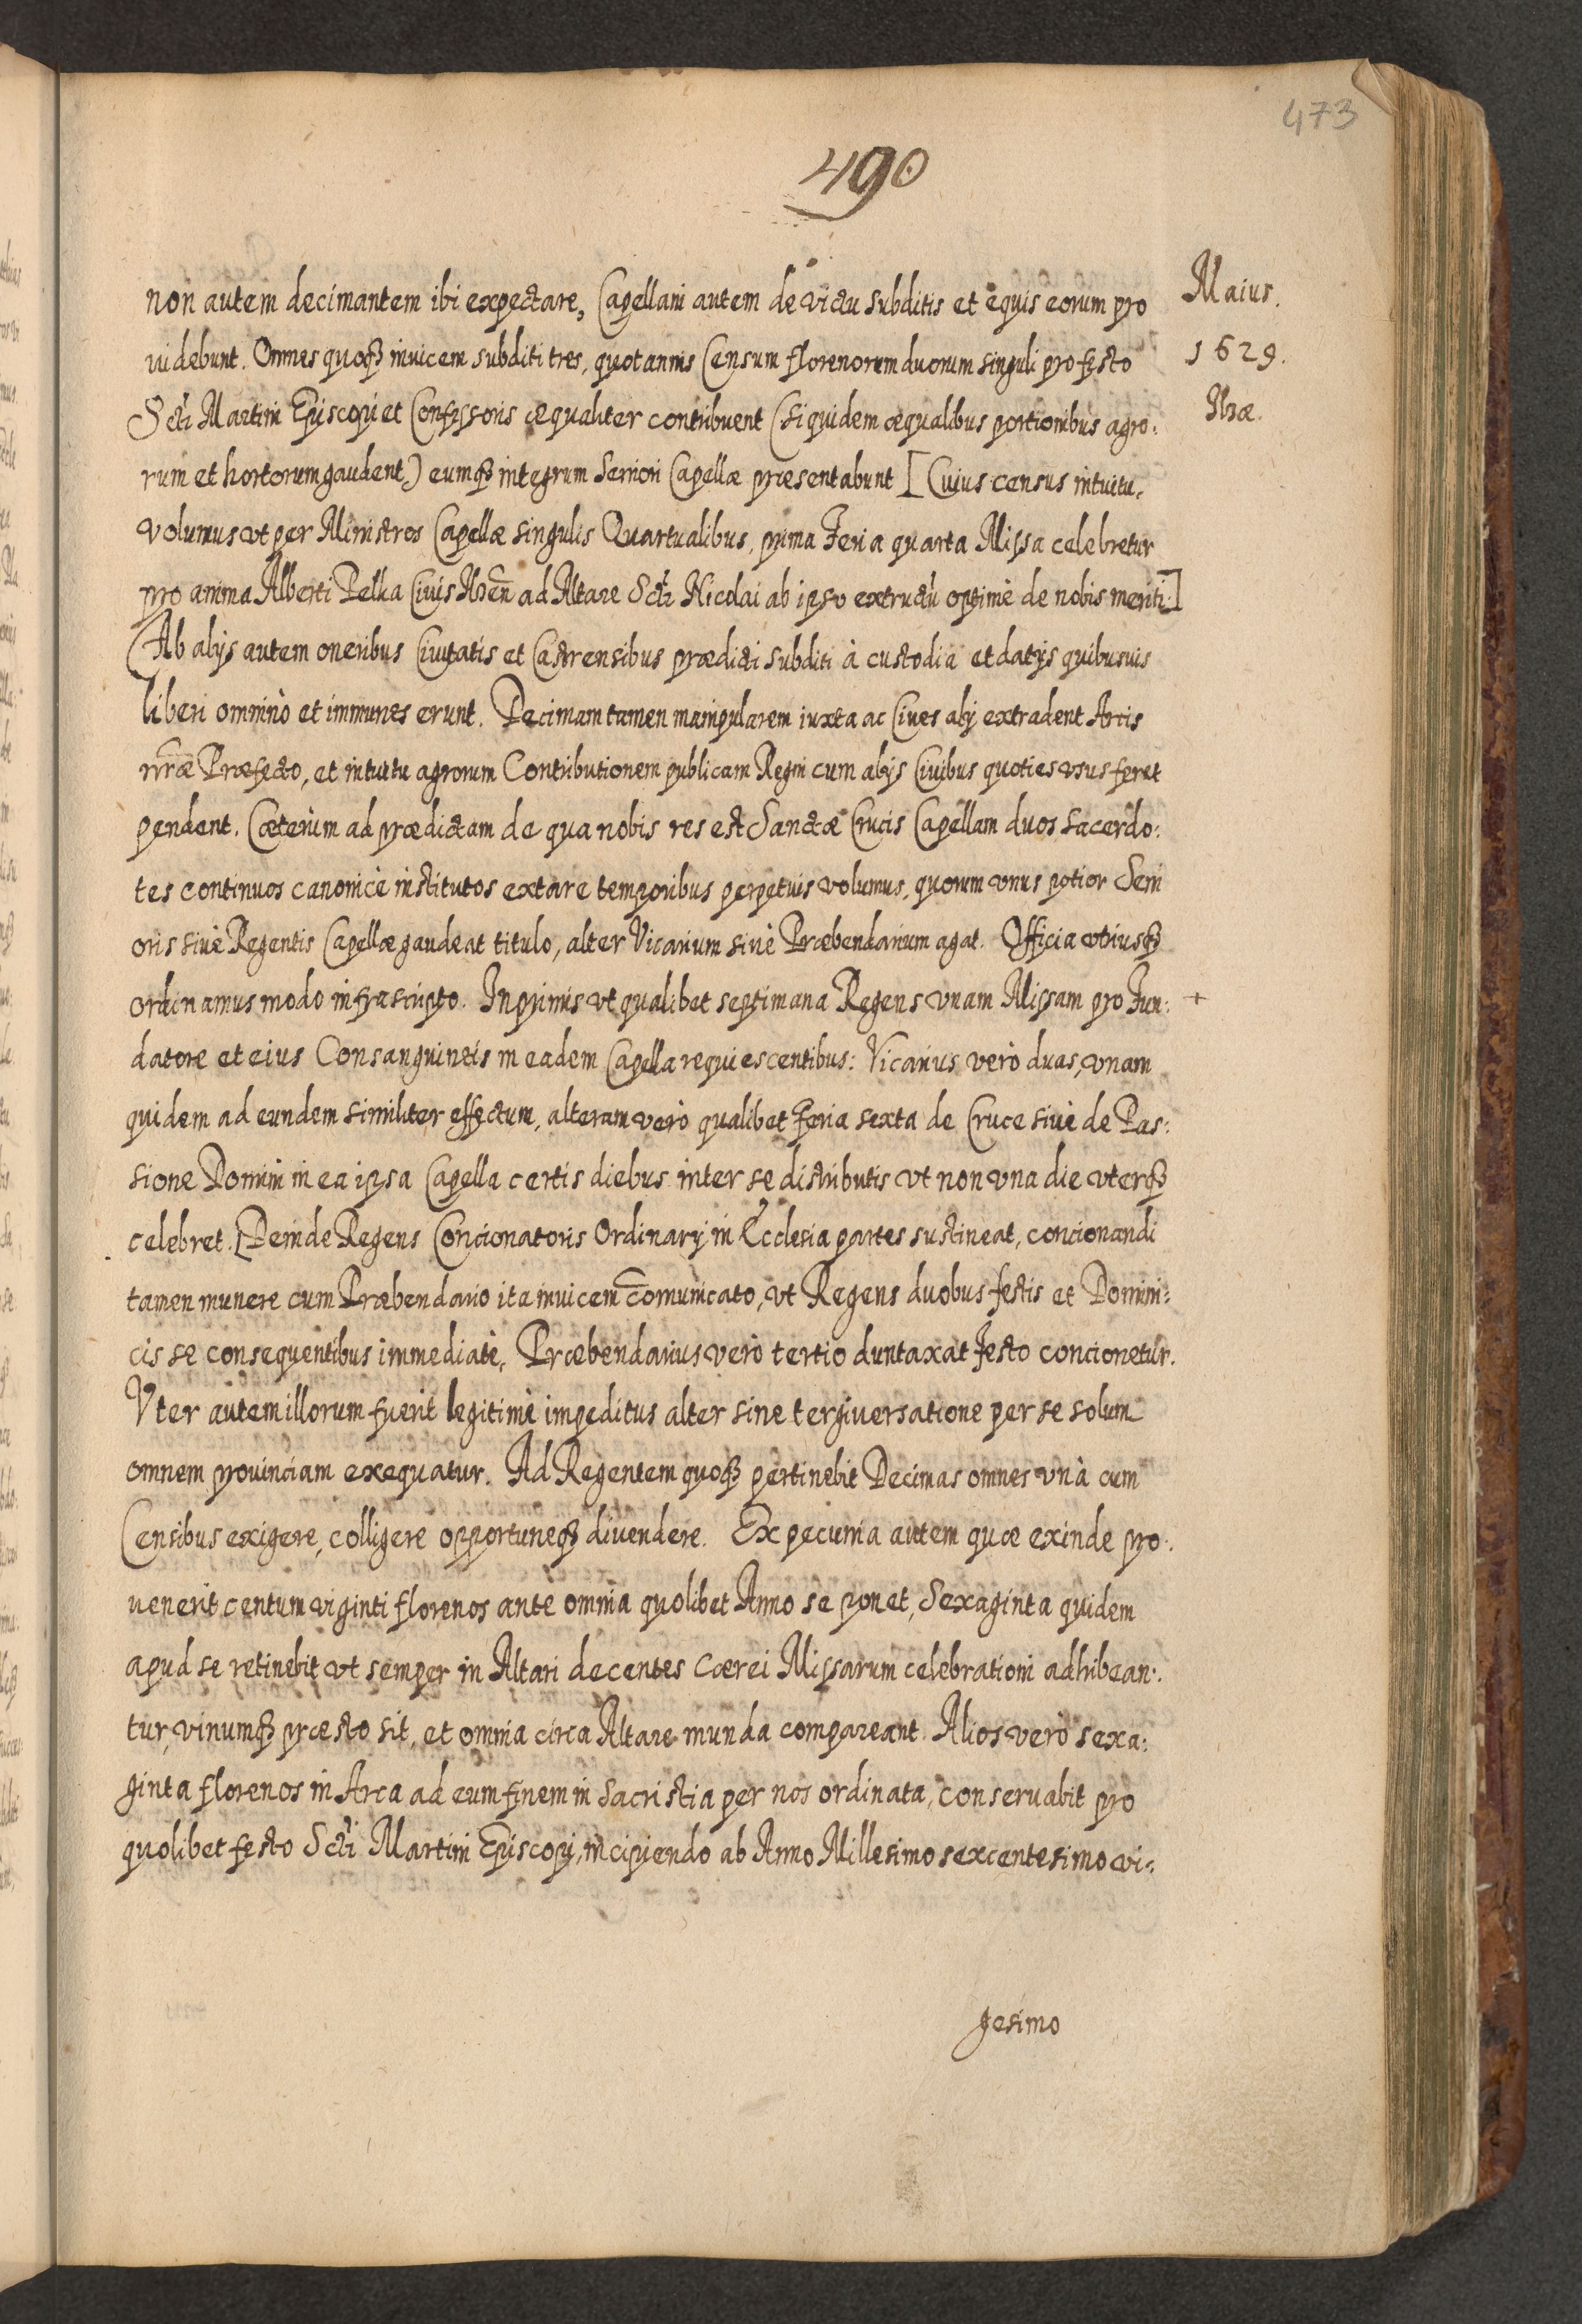 473
490
non autem decimantem ibi expectare, Capellani autem de victu subditis et equis eorum pro
uidebunt. Omnes quoqȝ inuicem subditi tres, quotannis Censum florenorum duorum singuli pro festo
Scti Martini Episcopi et Confessoris æqualiter contribuent (siquidem æqualibus portionibus agro:
rum et hortorum gaudent,) eumqȝ integrum Seniori Capellæ præsentabunt [Cuius census intuitu,
volumus vt per Ministros Capellæ singulis Quartualibus, prima Feria quarta Missa celebretur
pro anima Alberti Pełka Ciuis Ilzen̄ ad Altare Scti Nicolai ab ipso extructū optimè de nobis meriti.]
Ab alijs autem oneribus Ciuitatis et Castrensibus prædicti subditi à custodia et datijs quibusuis
liberi omninò et immunes erunt. Decimam tamen manipularem iuxta ac Ciues alij extradent Arcis
nr̄æ Præfecto, et intuitu agrorum Contributionem publicam Regni cum alijs Ciuibus quoties vsus feret
pendent. Cæterùm ad prædictam de qua nobis res est Sanctæ Crucis Capellam duos Sacerdo:
tes continuos canonicè institutos extare temporibus perpetuis volumus, quorum vnus potior Seni
oris siuè Regentis Capellæ gaudeat titulo, alter Vicarium siuè Præbendarium agat. Officia vtriusqȝ
ordinamus modo infrascripto. Inprimis vt qualibet septimana Regens vnam Missam pro Fun: +
datore et eius Consanguineis in eadem Capella requiescentibus: Vicarius verò duas, vnam
quidem ad eundem similiter effectum, alteram verò qualibet Feria sexta de Cruce siuè de Pas:
sione Domini in ea ipsa Capella certis diebus inter se distributis vt non vna die vterqȝ
celebret. [Deinde Regens Concionatoris Ordinarij in Ecclesia partes sustineat, concionandi
tamen munere cum Præbendario ita inuicem com̄unicato, vt Regens duobus festis et Domini:
cis se consequentibus immediatè, Præbendarius verò tertio duntaxat Festo concionetur.
Vter autem illorum fuerit legitimè impeditus alter sine tergiuersatione per se solum
omnem prouinciam exequatur. Ad Regentem quoqȝ pertinebit Decimas omnes vnà cum
Censibus exigere, colligere opportuneqȝ diuendere. Ex pecunia autem quæ exinde pro:
uenerit centum viginti florenos ante omnia quolibet Anno se ponet, Sexaginta quidem
apud se retinebit vt semper in Altari decentes Cærei Missarum celebrationi adhibean:
tur, vinumqȝ præsto sit, et omnia circa Altare munda compareant. Alios verò sexa:
ginta florenos in Arca ad eum finem in Sacristia per nos ordinata, conseruabit pro
quolibet festo Scti Martini Episcopi, incipiendo ab Anno Millesimo sexcentesimo vi:
gesimo
Maius.
1629.
Ilzæ.